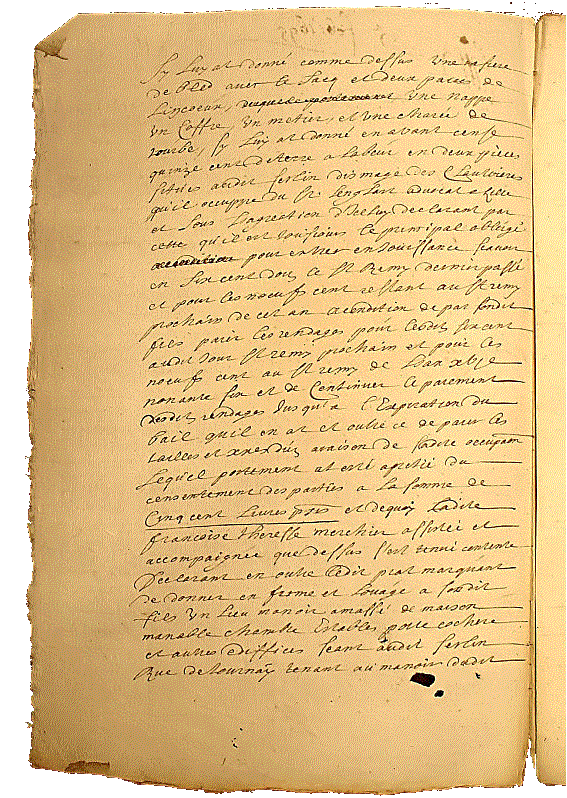 Sy Luy at donné comme dessus une rasiere
de bled avec le sacq et deux paires de
Linceux, une nappe
un Coffre un metier, et une charée de
tourbe, Sy Luy at donné en avant cense
quinze cent de terre a Labeur en deux pieces
scituées audit ferlin dismage des Clauwiers
qu'il occuppe du Sr advocat a Lille
et sous L'agreation d'iceluy declarant par
cette qu'il est tousiours le principal obligé
pour entrer en Jouissance scavoir
en six cent dois le St Remy dernier passé
et pour les noeufs cent restant au St remy
prochain de cet an acondition de par sondit
fils paier les rendages pour lesdits six cent
audit Jour St remij prochain et pour les
noeufs cent au St remy de L'an xvje
nonante six et de Continuer le paiement
desdits rendages Jusqu'a l'Expiration du
bail qu'il en at et outre ce de paier les
tailles et araison de ladite occupaon
Lequel portement at esté apretié du
consentement des parties a la somme de
Cinq cent Livres prs et dequoy Ladite
francoise theresse merchier assistée et
accompagnée que dessus s'est tenue contente
Declarant en outre Ledit prat marquant
de donner en ferme et Louage a sondit
fils un Lieu manoir amassé de maison
manable chambre Estables porte cochere
et autres edifices seant audit ferlin
Rue de tournay tenant au manoir dudit